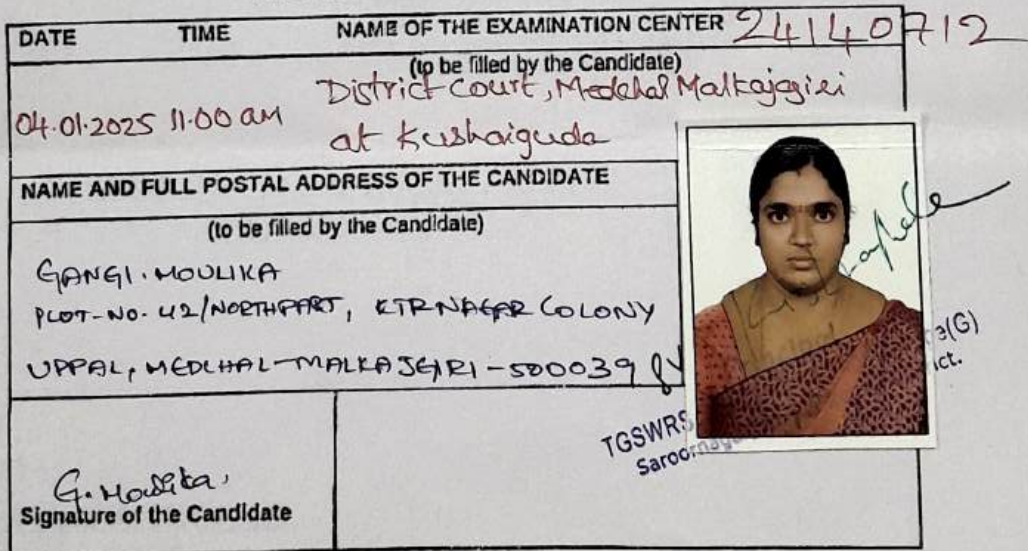 DATE TIME NAME OF THE EXAMINATION CENTER 24140712
(to be filled by the Candidate)
04.01.2025 11.00 am District Court, Medchal Malkajgiri
at Kushaiguda
NAME AND FULL POSTAL ADDRESS OF THE CANDIDATE
(to be filled by the Candidate)
GANGI. MOULIKA
PLOT-NO. 42/NORTHPART, KTR NAGAR COLONY
UPPAL, MEDCHAL-MALKAJGIRI-500039
3(G)
ict.
TGSWRS
Saroornaga
G. Moulika
Signature of the Candidate